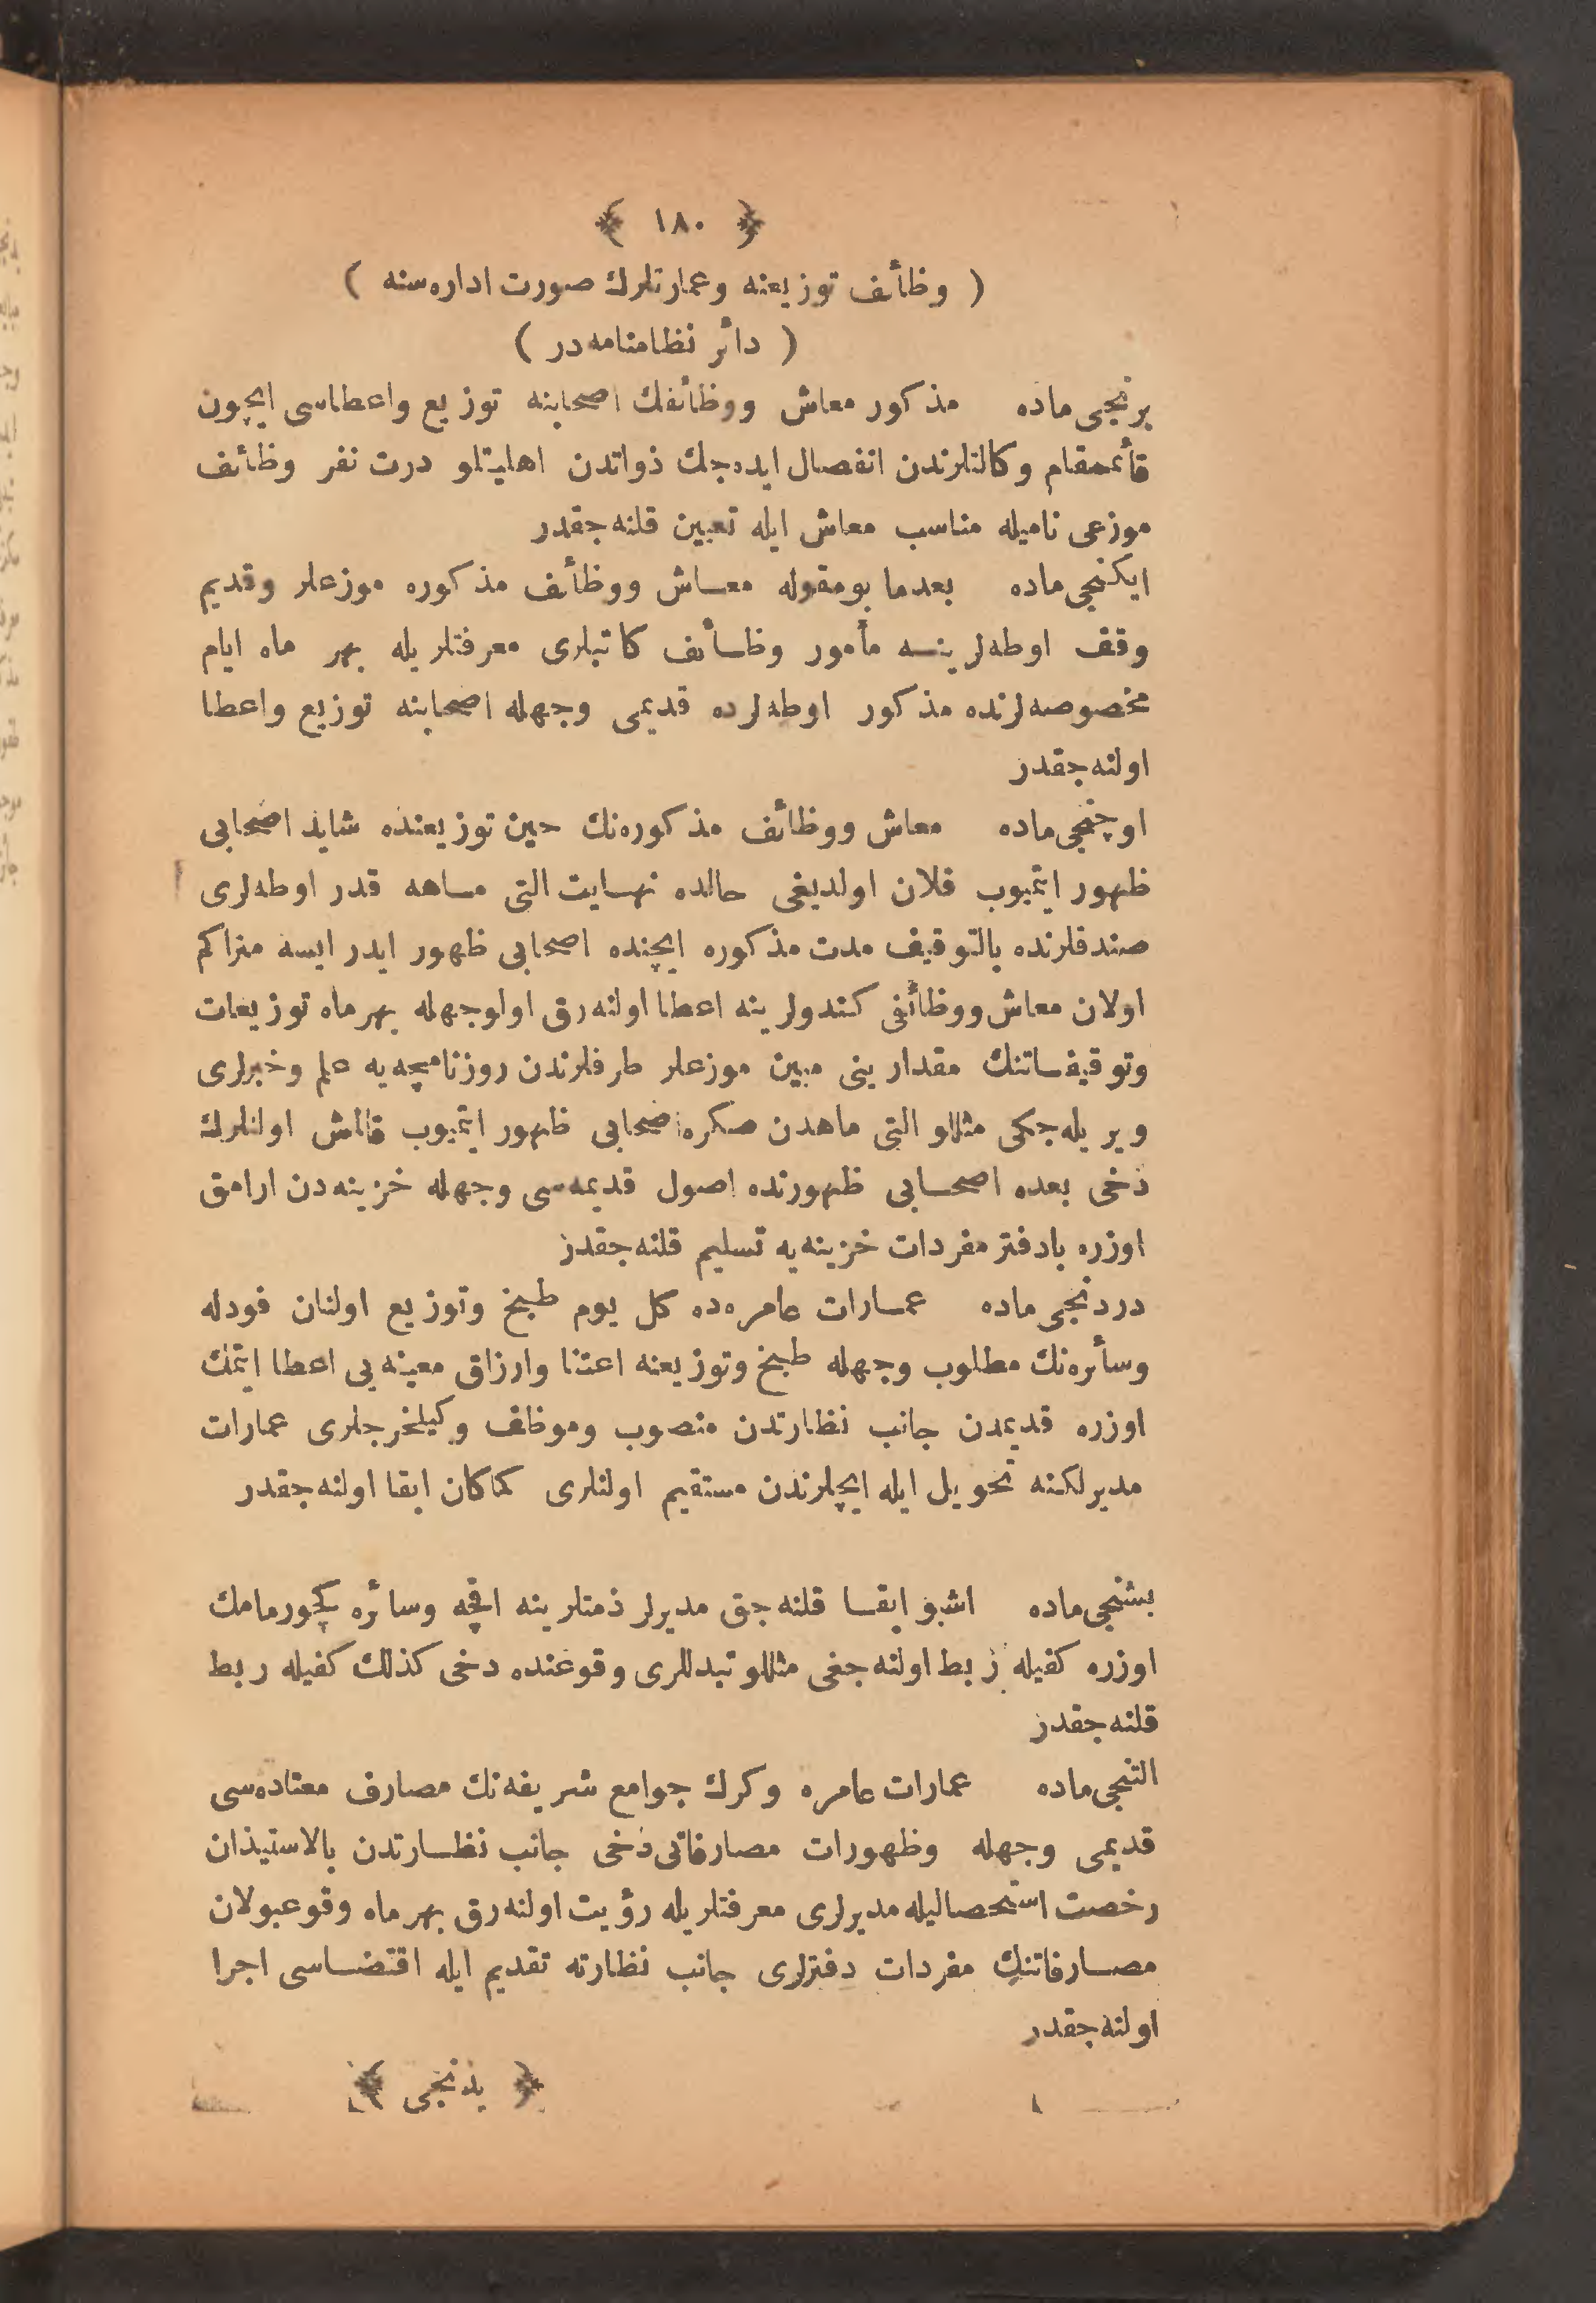 ﴿ ١٨٠ ﴾
( وظائف توزيعنه وعمارتلرك صورت اداره‌سنه )
( دائر نظامنامه‌در )
برنجى ماده مذكور معاش ووظائفك اصحابنه توزيع واعطاسى ايچون
قائممقام وكالتلرندن انفصال ايده‌جك ذواتدن اهليتلو درت نفر وظائف
موزعى ناميله مناسب معاش ايله تعيين قلنه‌جقدر
ايكنجى ماده بعدما بومقوله معاش ووظائف مذكوره موزعلر وقديم
وقف اوطه‌لرينه مأمور وظائف كاتبلرى معرفتلريله بهر ماه ايام
مخصوصه‌لرنده مذكور اوطه‌لرده قديمى وجهله اصحابنه توزيع واعطا
اولنه‌جقدر
اوچنجى ماده معاش ووظائف مذكوره‌نك حين توزيعنده شايد اصحابى
ظهور ايتميوب فلان اولديغى حالده نهايت التى ماهه قدر اوطه‌لرى
صندقلرنده بالتوقيف مدت مذكوره ايچنده اصحابى ظهور ايدر ايسه متراكم
اولان معاش ووظائفى كندولرينه اعطا اولنه‌رق اولوجهله بهرماه توزيعات
وتوقيفاتنك مقدارينى مبين موزعلر طرفلرندن روزنامچه‌يه علم وخبرلرى
ويريله‌جكى مثللو التى ماهدن صكره اصحابى ظهور ايتميوب قالمش اولنلرك
دخى بعده اصحابى ظهورنده اصول قديمه‌سى وجهله خزينه‌دن ارامق
اوزره بادفتر مفردات خزينه‌يه تسليم قلنه‌جقدر
دردنجى ماده عمارات عامره‌ده كل يوم طبخ وتوزيع اولنان فودله
وسائره‌نك مطلوب وجهله طبخ وتوزيعنه اعتنا وارزاق معينه‌يى اعطا ايتمك
اوزره قديمدن جانب نظارتدن منصوب وموظف وكيلخرجلرى عمارات
مديرلكنه تحويل ايله ايچلرندن مستقيم اولنلرى كماكان ابقا اولنه‌جقدر
بشنجى ماده اشبو ابقا قلنه‌جق مديرلر ذمتلرينه اقچه وسائره كچورمامك
اوزره كفيله ربط اولنه‌جغى مثللو تبدللرى وقوعنده دخى كذلك كفيله ربط
قلنه‌جقدر
التنجى ماده عمارات عامره وكرك جوامع شريفه‌نك مصارف معتاده‌سى
قديمى وجهله وظهورات مصارفاتى دخى جانب نظارتدن بالاستيذان
رخصت استحصاليله مديرلرى معرفتلريله رؤيت اولنه‌رق بهرماه وقوعبولان
مصارفاتنك مفردات دفترلرى جانب نظارته تقديم ايله اقتضاسى اجرا
اولنه‌جقدر
﴿ يدنجى ﴾